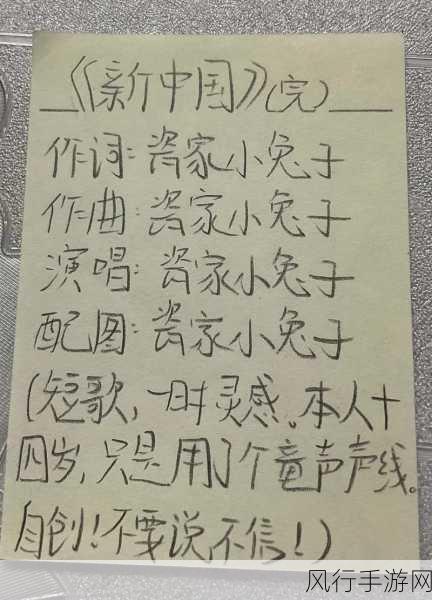 《新中国》(完)
作词:瓷家小兔子
作曲:瓷家小兔子
演唱:瓷家小兔子
配图:瓷家小兔子
(短歌,一时灵感。本人十
四岁,只是用了个童声声线。
自创!不要说不信!)
风行手游网